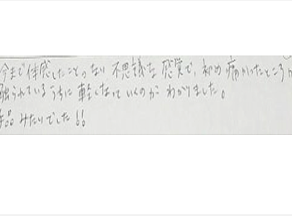 今まで体感したことのない不思議な感覚で、初め痛かいたところが
触られているうちに軽くなっていくのがわかりました。
みたいでした!!